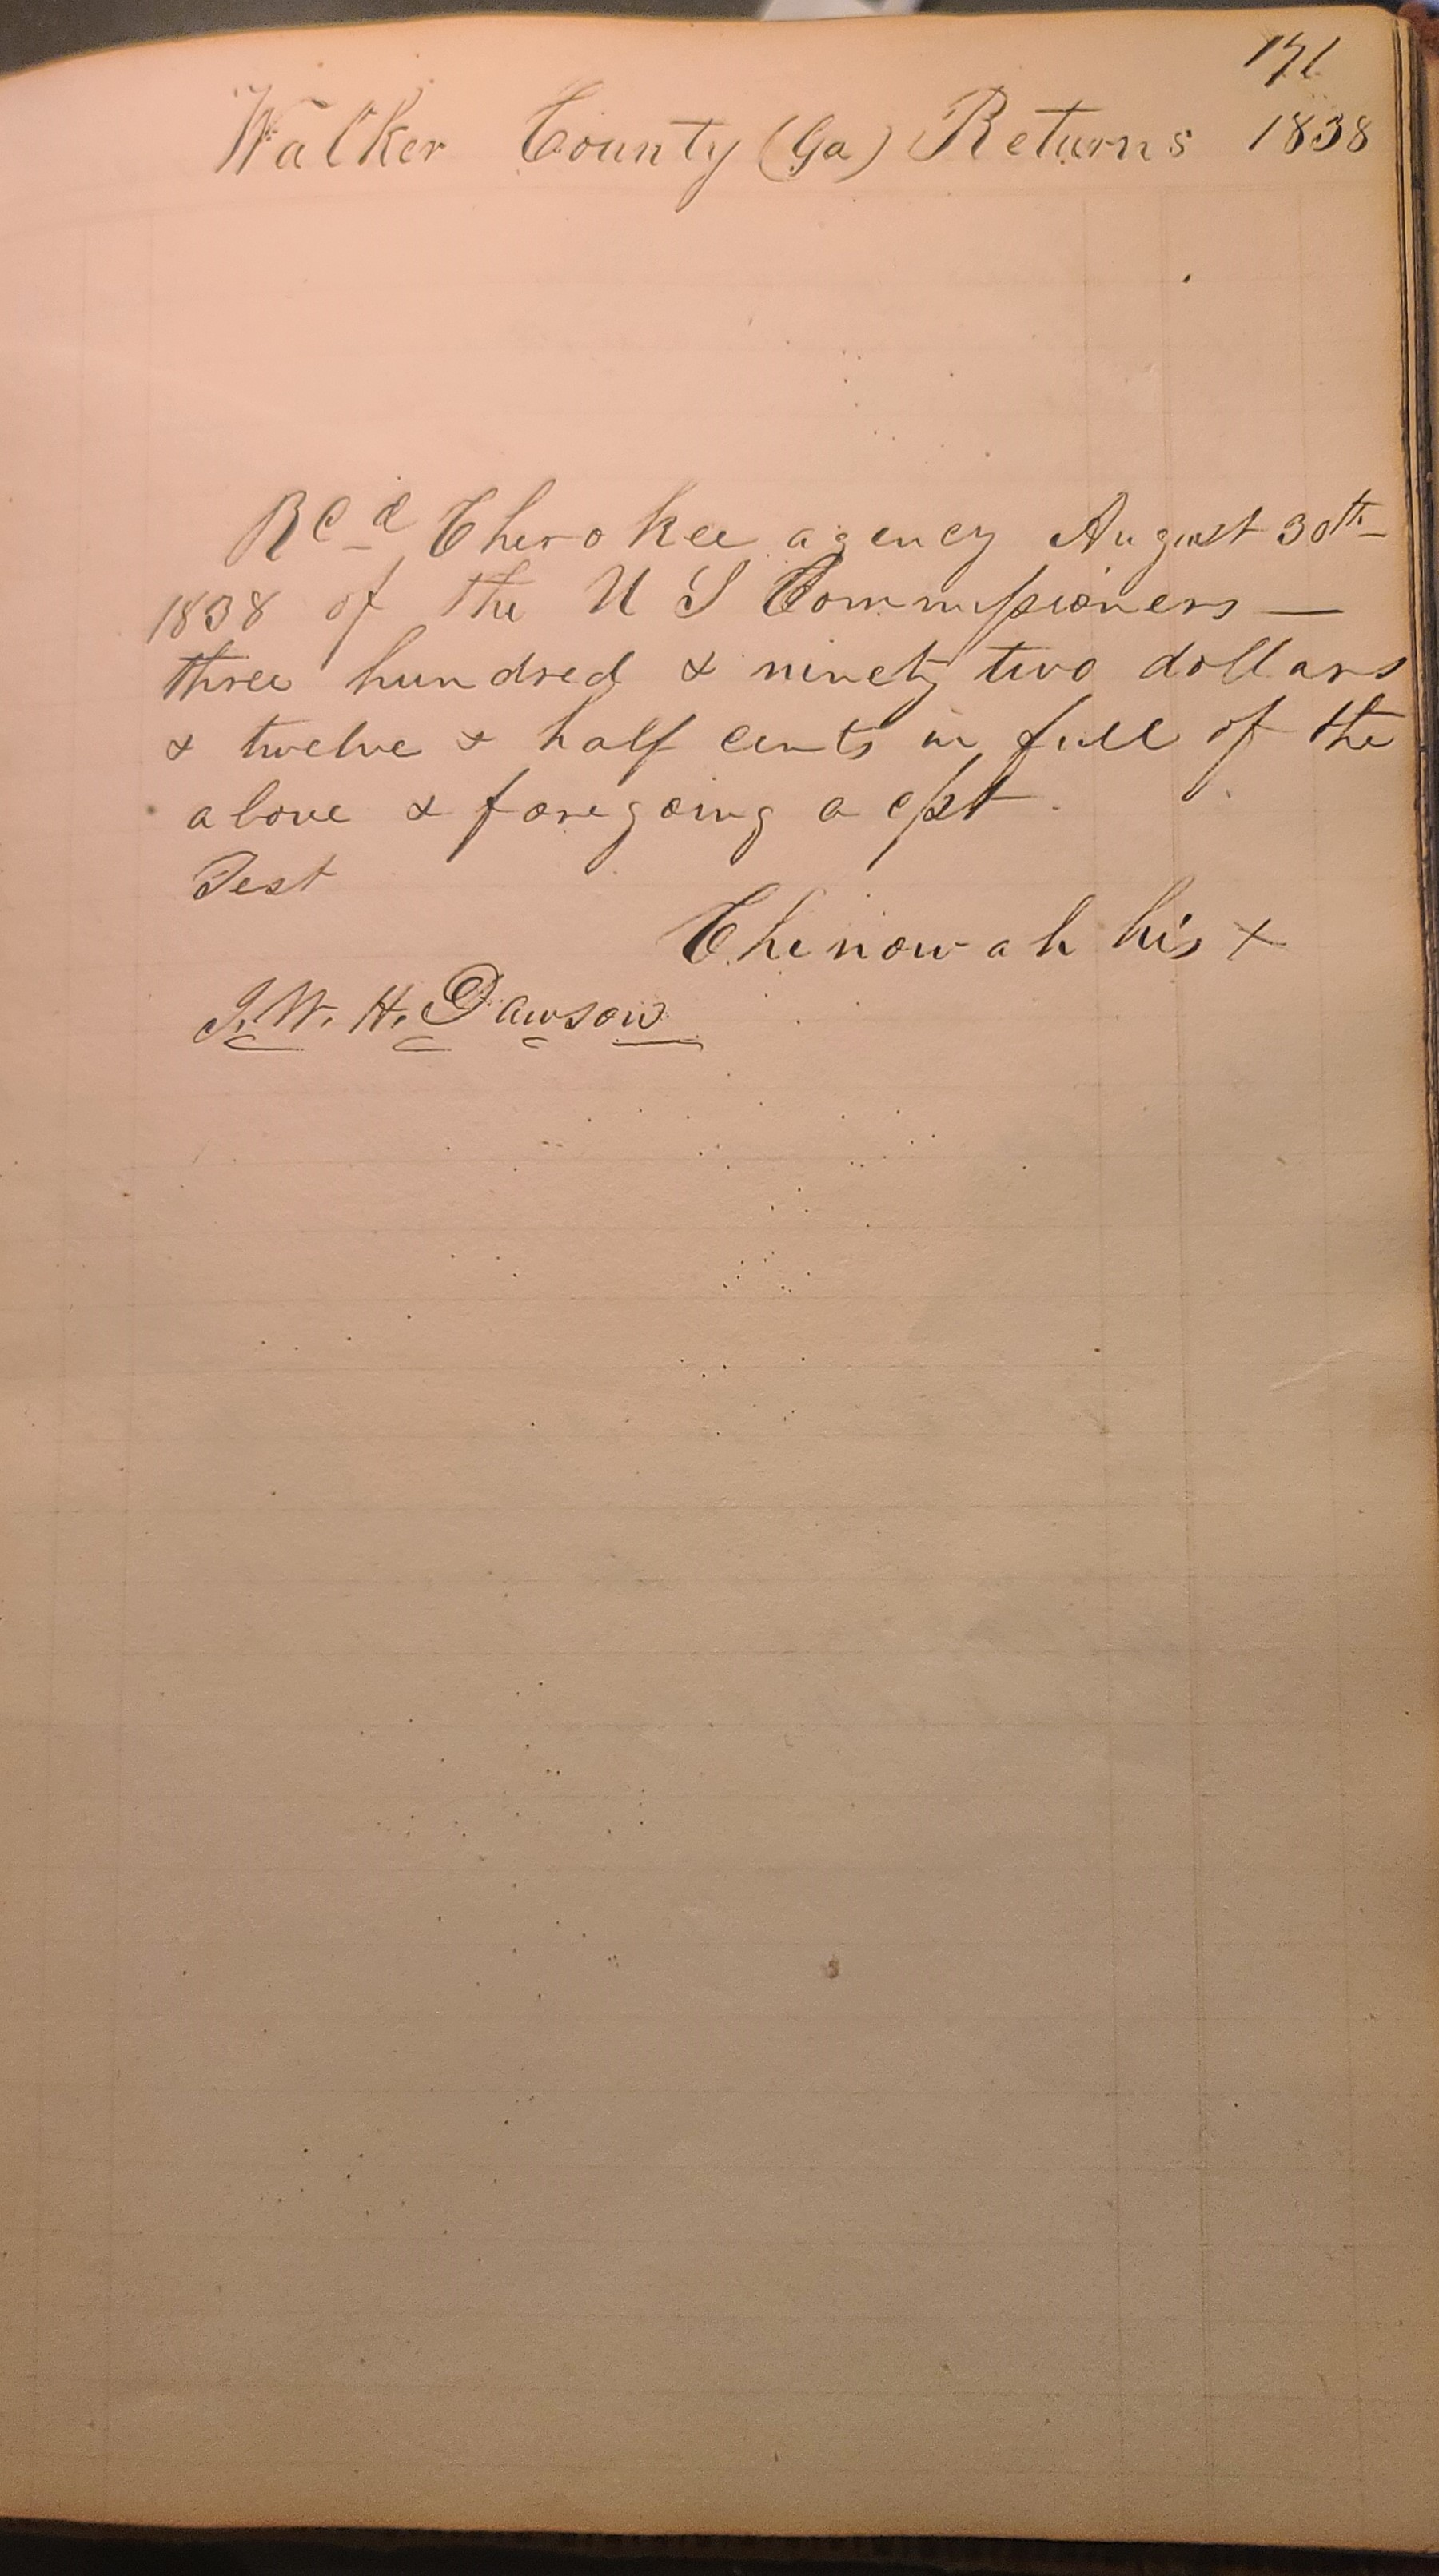 171
Walker County (Ga) Returns 1838
Rcd Cherokee agency August 30th
1838 of the U S Commissioners —
three hundred & ninety two dollars
& twelve & half cents in full of the
above & foregoing acpt.
Test
Chenowah his x
J. W. H. Dawson